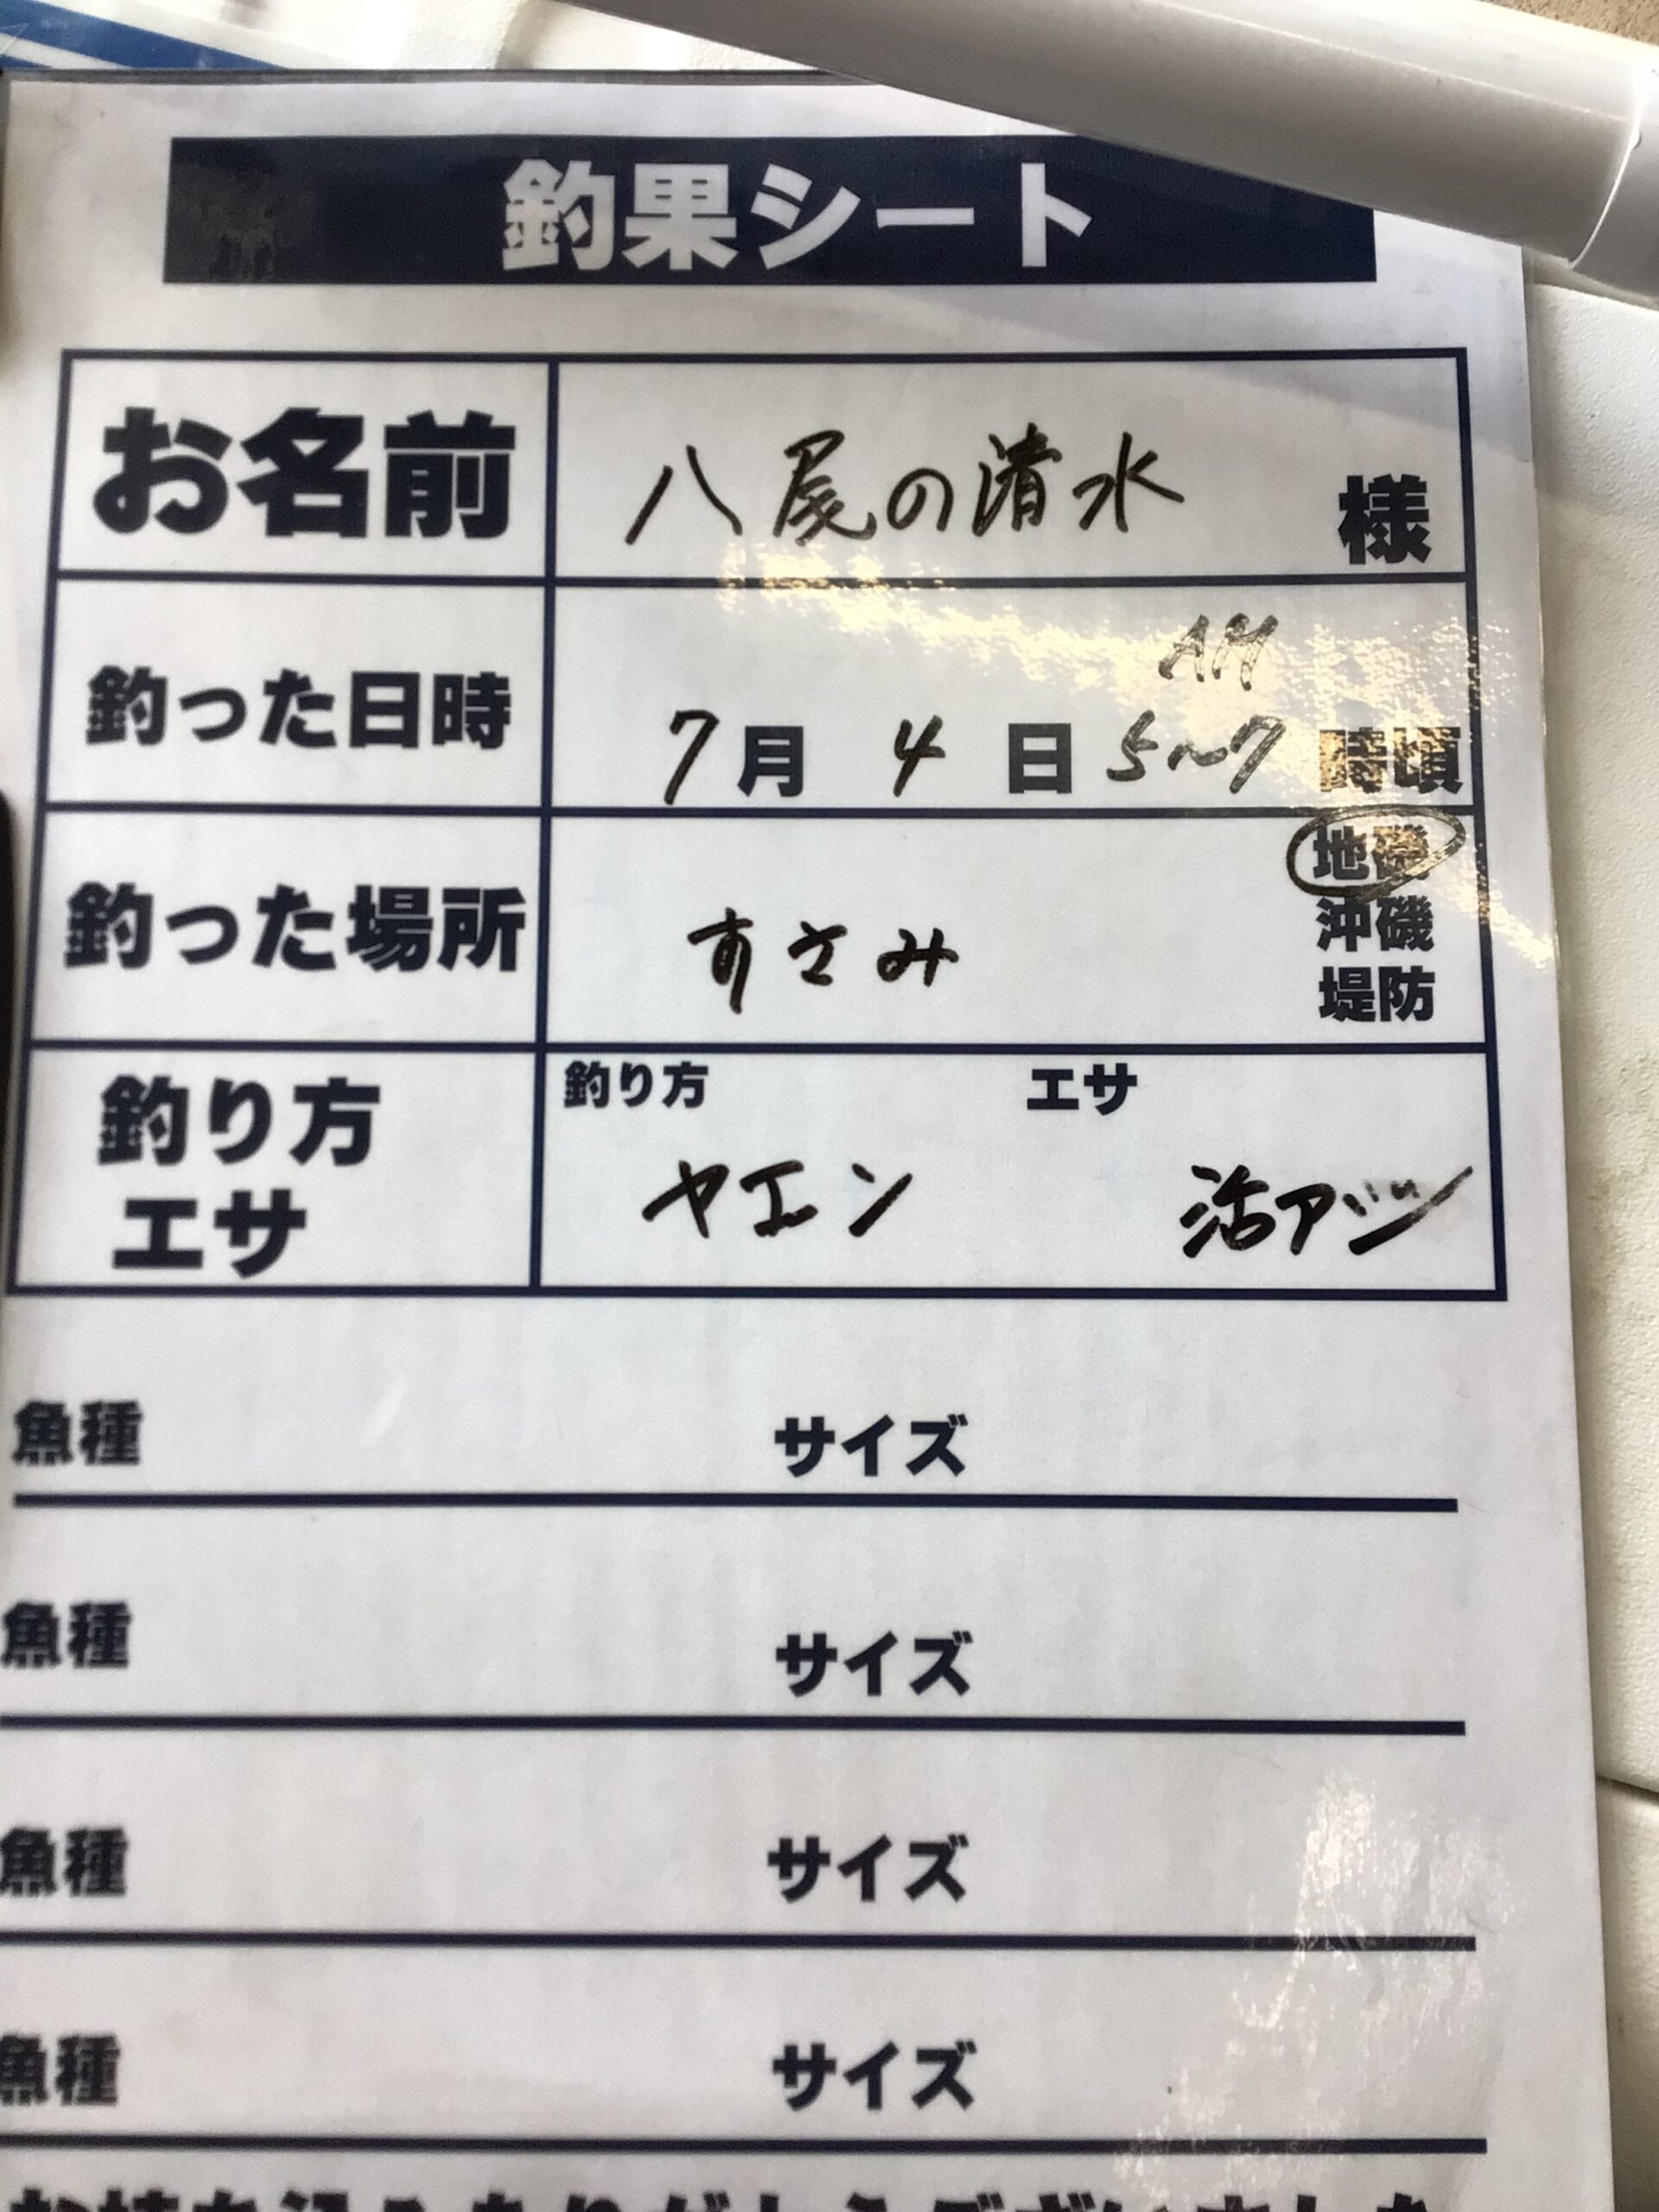 釣果シート
お名前 八尾の清水 様
AM
釣った日時 7月 4日 5~7時頃
地磯
釣った場所 すさみ 沖磯
堤防
釣り方 エサ
釣り方 ヤエン 活アジ
エサ
魚種 サイズ
魚種 サイズ
魚種 サイズ
魚種 サイズ